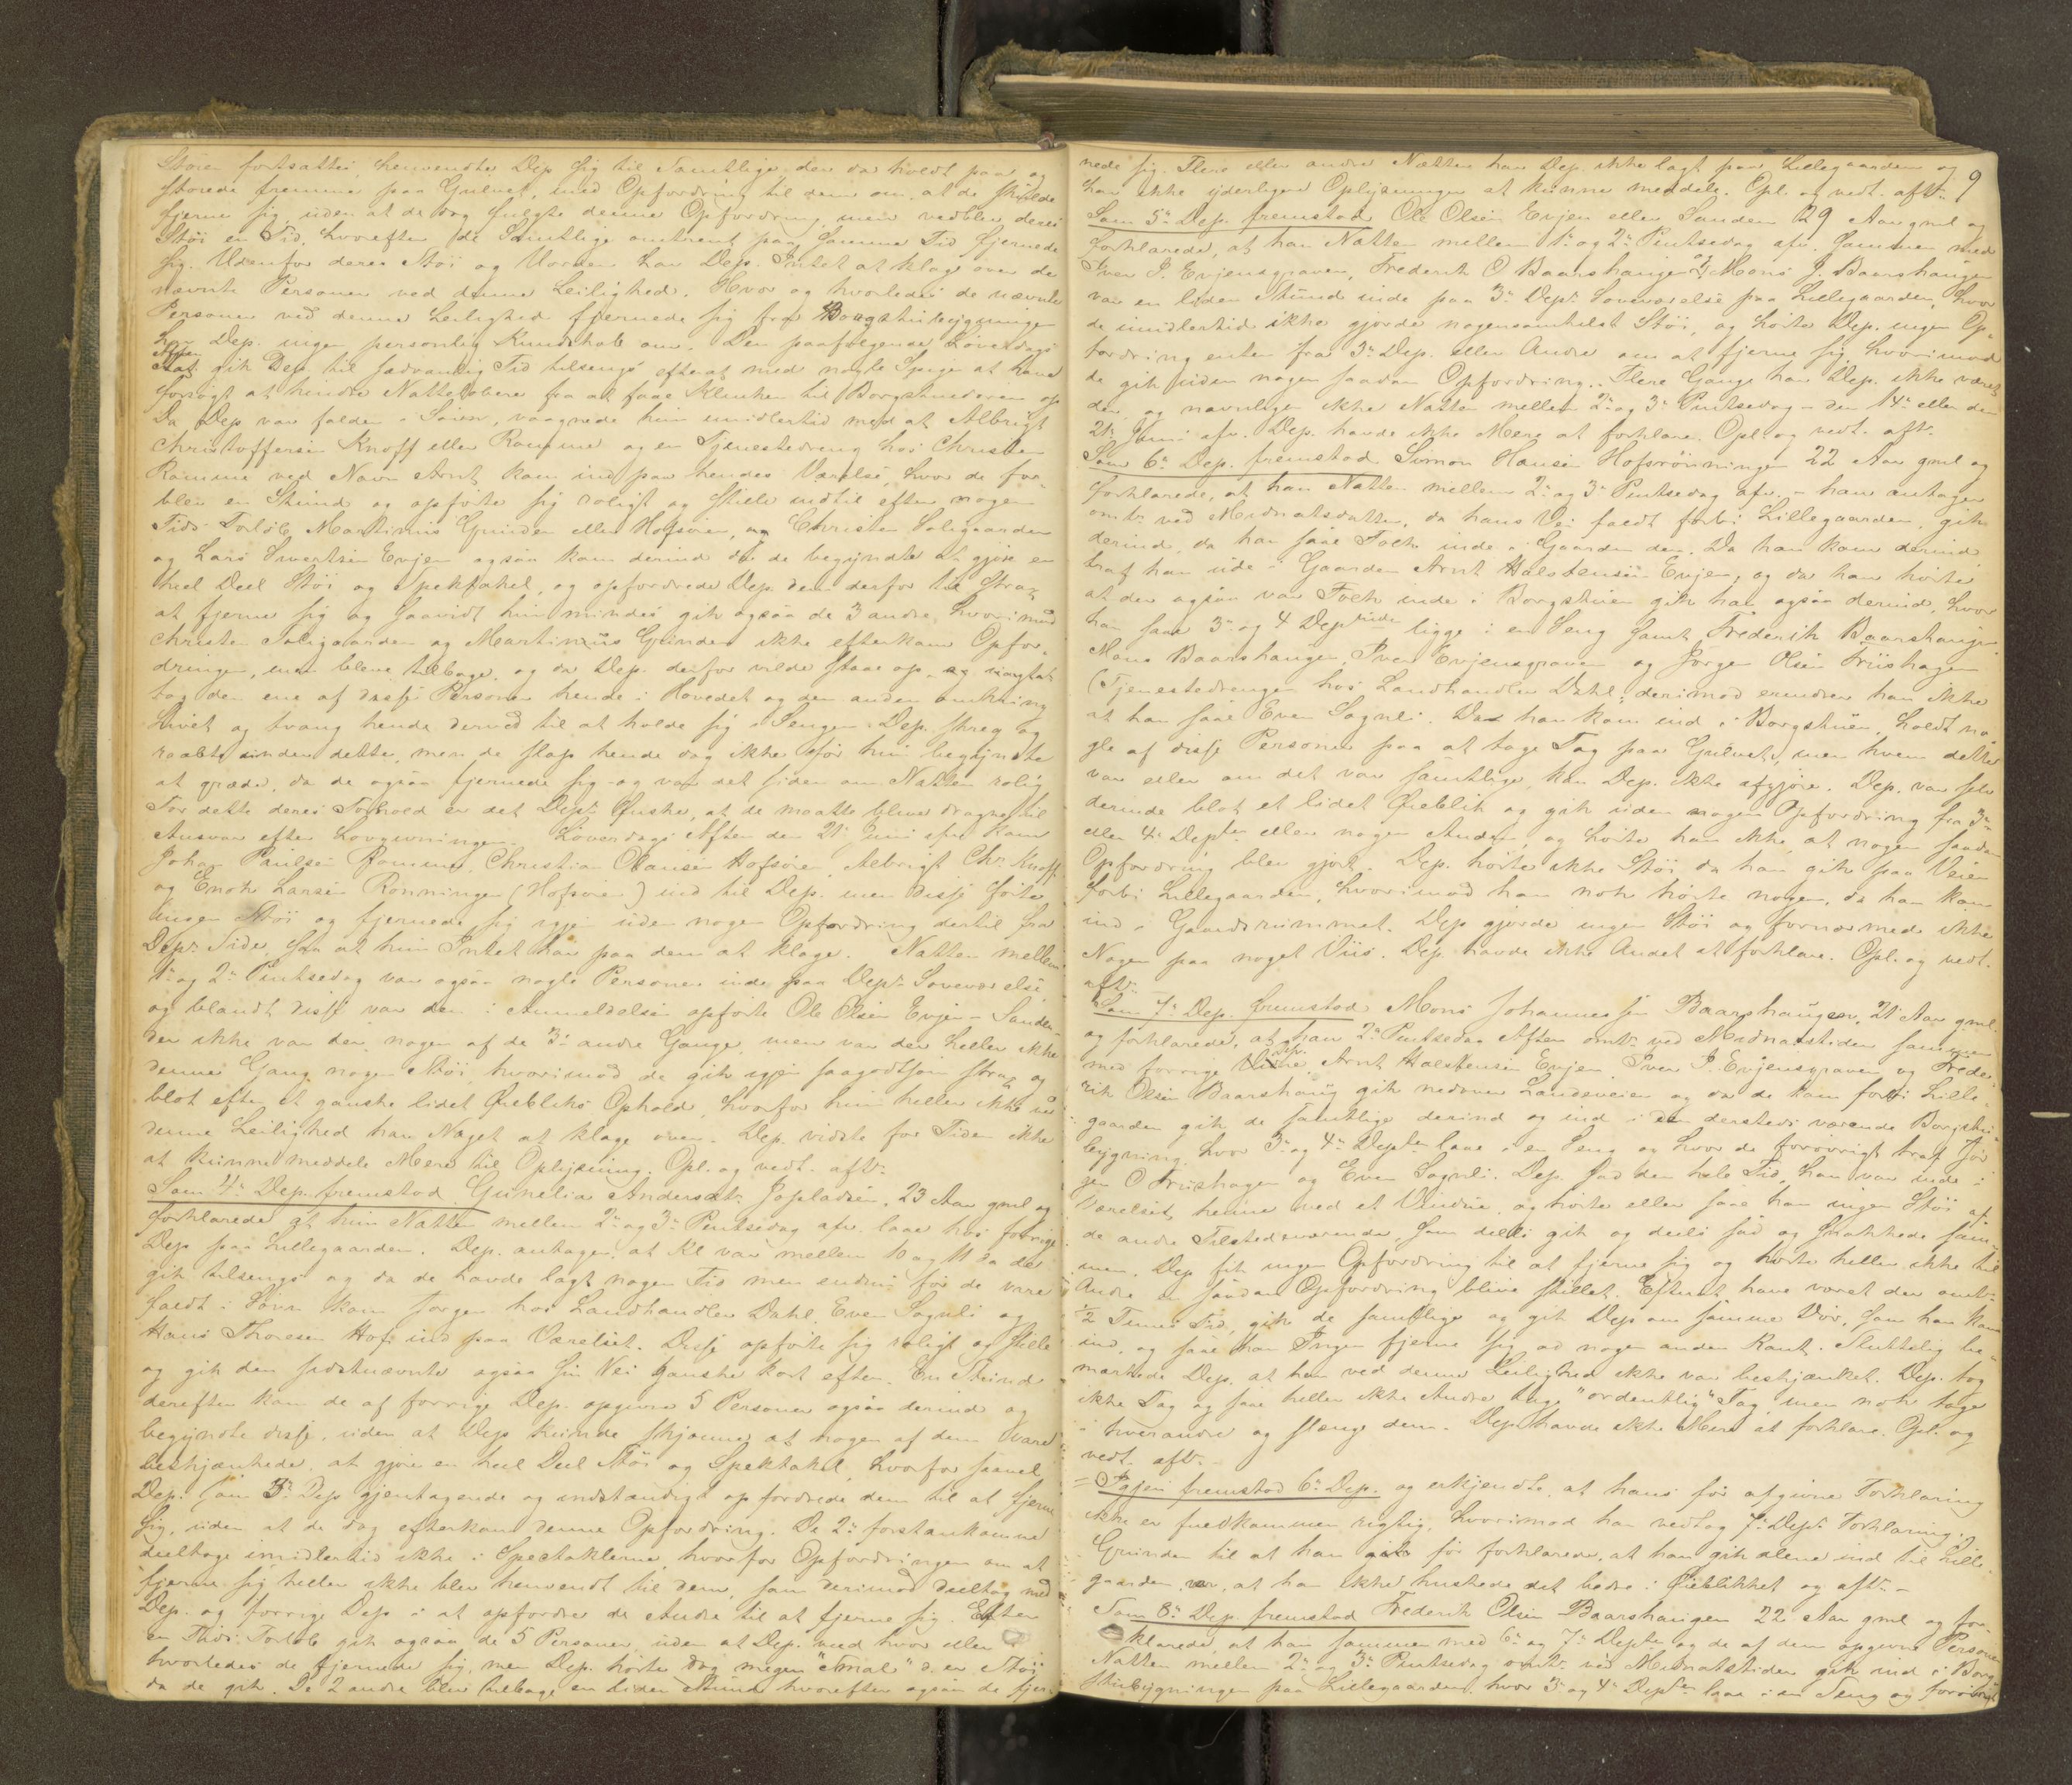 Støien fortsattes, henvendte Dep sig til Samtlige der da holdt paa og
storede fremme paa Gulvet, med Opfordring til dem om, at de skulde
fjerne sig, uden at de dog fulgte denne Opfordring, men vedblev deres
Støi en Tid, hvorefter de Samtlige omtrent paa samme Tid fjernede
sig. Udenfor deres Støi og Uorden har Dep. Intet at klage over de
nævnte Personer ved denne Leilighed. Hvor og hvorledes de nævnte
Personer ved denne Leilighed fjernede sig fra Borgstubygningen
har Dep. ingen personlig Kundskab om. Den paafølgende Løverdags
Aften gik Dep. til sædvanlig Tid tilsengs efterat med nogle Spiger at have
forsøgt at hindre Natteløbere fra at faae Klinken til Borgstuedøren op
Da Dep var falden i Søvn, vaagnede hun imidlertid med at Albrigt
Christoffersen Knoff eller Ramme og en Tjenestedreng hos Christen
Ramme ved Navn Arnt kom ind paa hendes Værelse, hvor de for,
blev en Stund og opførte sig roligt og stille indtil efter nogen
Tids Forløb Martinus Grinden eller Hofsøien, og Christen Soligaarden
og Lars Sivertsen Evjen ogsaa kom derind da de begyndte at gjøre en
heel Deel Støi og Spektakel, og opfordrede Dep. dem derfor til strax
at fjerne sig og saavidt hun mindes gik ogsaa de 3 andre, hvorimod
Christen Soligaarden og Martinus Grinden ikke efterkom Opfor,
dringen, men bleve tilbage, og da Dep. derfor vilde staae op
tog den ene af disse Personer hende i Hovedet og den anden omkring
Livet og tvang hende derved til at holde sig i Sengen. Dep. skreg og
raabte under dette, men de slap hende dog ikke før hun begyndte
at græde, da de ogsaa fjernede sig og var det siden om Natten rolig
For dette deres Forhold er det Dep.s Ønske, at de maatte blive dragne til
Ansvar efter Lovgivningen. Løverdags Aften den 21. Juni afv. kom
Johan Paulsen Ramme, Christian Olausen Hofsøien, Albrigt Chr. Knoff
og Enok Larsen Rønningen (Hofsøien) ind til Dep. men disse førte
ingen Støi og fjernede sig igjen uden nogen Opfordring dertil fra
Dep.s Side, saa at hun Intet har paa dem at klage. Natten mellem
1. og 2. Pintsedag var ogsaa nogle Personer inde paa Dep.s Soveværelse
og blandt disse var den i Anmeldelsen opførte Ole Olsen Evjen - Sanden
der ikke var der nogen af de 3 andre Gange, men var der heller ikke
denne Gang nogen Støi, hvorimod de gik igjen saagodtsom strax og
blot efter et ganske lidet Øiebliks Ophold, hvorfor hun heller ikke ved
denne Leilighed har Noget at klage over. Dep. vidste for Tiden ikke
at kunne meddele Mere til Oplysning. Opl. og vedt. aftr.
Som 4. Dep. fremstod Gunelia Andersdtr. 23 Aar gml og
forklarede at hun Natten mellem 2. og 3. Pintsedag afv. laae hos forrige
Dep paa Lillegaarden. Dep. antager, at Kl var mellem 10 og 11 da de
gik tilsengs og da de havde lagt nogen Tid men endnu før de vare
faldt i Søvn kom Jørgen hos Landhandler Dahl, Even Sognli og
Hans Thoresen Hof ind paa Værelset. Disse opførte sig roligt og stille
og gik den sidstnævnte ogsaa sin Vei ganske kort efter. En Stund
derefter kom de af forrige Dep. opgivne 5 Personer ogsaa derind og
begyndte disse, uden at Dep kunde skjønne at nogen af dem vare
beskjænkede, at gjøre en heel Deel Støi og Spektakel, hvorfor saavel
Dep. som 3. Dep gjentagende og indstændigt opfordrede dem til at fjerne
sig, uden at de dog efterkom denne Opfordring. De 2. forstankomne
deeltoge imidlertid ikke i Spectaklerne, hvorfor Opfordringen om at
fjerne sig heller ikke blev henvendt til dem, som derimod deeltog med
Dep. og forrige Dep i at opfordre de Andre til at fjerne sig. Efter
en Tids Forløb gik ogsaa de 5 Personer, uden at Dep. veed hvor eller
hvorledes de fjernede sig, men Dep. hørte dog megen "Smal" d. er Støi
da de gik. De 2 andre blev tilbage en liden Stund hvorefter ogsaa de fjer-
9
nede sig. Flere eller andre Nætter har Dep. ikke lagt paa Lillegaarden og
har ikke yderligere Oplysninger at kunne meddele. Opl. og vedt. aftr.
Som 5. Dep. fremstod Ole Olsen Evjen eller Sanden 29 Aar gml og
forklarede, at han Natten mellem 1. og 2. Pintsedag afv. sammen med
Iver J. Evjensgraven, Frederik O Baarshaugen og Mons J. Baarshaugen
var en liden Stund inde paa 3. Dep.s Soveværelse paa Lillegaarden, hvor
de imidlertid ikke gjorde nogensomhelst Støi, og hørte Dep. ingen Op,
fordring enten fra 3. Dep. eller Andre om at fjerne sig, hvorimod
de gik uden nogen saadan Opfordring. Flere Gange har Dep. ikke været
der, og navnligen ikke Natten mellem 2. og 3. Pintsedag - den 14. eller den
21. Juni afv. Dep. havde ikke Mere at forklare. Opl. og vedt. aftr.
Som 6. Dep. fremstod Simon Hansen Hofsrønningen 22 Aar gml og
forklarede, at han Natten mellem 2. og 3. Pintsedag afv. - han antager
omtr. ved Midnatstide, da hans Vei faldt forbi Lillegaarden, gik
derind, da han saae Folk inde i Gaarden der. Da han kom derind
traf han ude i Gaarden Arnt Halstensen Evjen, og da han hørte
at der ogsaa var Folk inde i Borgstuen gik han ogsaa derind, hvor
han saae 3. og 4 Dep.inde ligge i en Seng samt Frederik Baarshaugen
Mons Baarshaugen, Iver Evjensgraven og Jørgen Olsen Friishagen
(Tjenestedrengen hos Landhandler Dahl; derimod erindrer han ikke
at han saae Even Sognli. Da han kom ind i Borgstuen, holdt no,
gle af disse Personer paa at tage Tag paa Gulvet, men hvem dette
var eller om det var samtlige, kan Dep. ikke afgjøre. Dep. var selv
derinde blot et lidet Øieblik og gik uden nogen Opfordring fra 3.
eller 4. Dep.ter eller nogen Anden, og hørte han ikke, at nogen saadan
Opfordring blev gjort. Dep. hørte ikke Støi, da han gik paa Veien
forbi Lillegaarden, hvorimod han nok hørte nogen, da han kom
ind i Gaardsrummet. Dep gjorde ingen Støi og fornærmede ikke
Nogen paa noget Viis. Dep. havde ikke Andet at forklare. Opl. og vedt.
aftr.
Som 7. Dep. fremstod Mons Johannessen Baarshaugen, 21 Aar gml.
og forklarede, at han 2. Pintsedag Aften omtr. ved Midnatstiden sammen
med forrige Dep. Arnt Halstensen Evjen, Iver J. Evjensgraven og Frede,
rik Olsen Baarshaug gik nedover Landeveien og da de kom forbi Lille,
gaarden gik de samtlige derind og ind i den dersteds værende Borgstu,
bygning, hvor 3. og 4. Dep.ter laae i en Seng og hvor de forøvrigt traf Jør
gen O Friishagen og Even Sognli. Dep. sad den hele Tid, han var inde i
Værelset, henne ved et Vindue, og hørte eller saae han ingen Støi af
de andre Tilstedeværende, som deels gik og deels sad og snakkede sam,
men. Dep fik ingen Opfordring til at fjerne sig og hørte heller ikke til
Andre en saadan Opfordring blive stillet. Efterat have været der omtr.
1/2 Times Tid, gik de samtlige og gik Dep om samme Dør, som han kom
ind, og saae han Ingen fjerne sig ad nogen anden Kant. Sluttelig be,
mærkede Dep. at han ved denne Leilighed ikke var beskjænket. Dep. tog
ikke Tag og saae heller ikke Andre tage "ordentlig" Tag, men nok tage
i hverandre og slænge dem. Dep havde ikke Mere at forklare. Opl. og
vedt. aftr. -
= Igjen fremstod 6. Dep. og erkjendte, at hans før afgivne Forklaring
ikke er fuldkommen rigtig, hvorimod han vedtog 7. Dep.s Forklaring.
Grunden til at han før forklarede, at han gik alene ind til Lille,
gaarden, var, at han ikke huskede det bedre i Øieblikket og aftr. -
Som 8. Dep. fremstod Frederik Olsen Baarshaugen 22 Aar gml og for,
klarede, at han sammen med 6. og 7. Dep.ter og de af dem opgivne Personer
Natten mellem 2. og 3. Pintsedag omtr. ved Midnatstiden gik ind i Borg
stubygningen paa Lillegaarden, hvor 3. og 4. Dep.ter laae i en Seng og forøvrigt